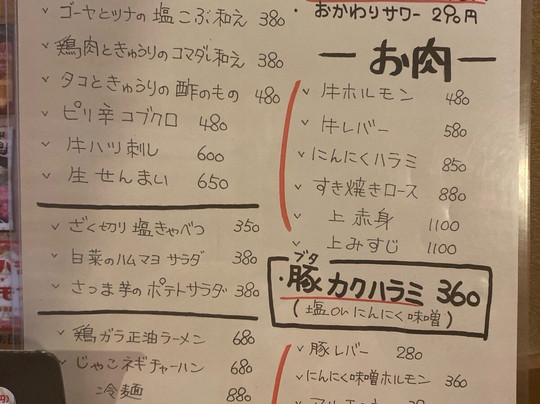 ゴーヤとツナの塩こぶ和え 380
鶏肉ときゅうりのコマダレ和え 380
タコときゅうりの酢のもの 480
ピリ辛コブクロ 480
牛ハツ刺し 600
生せんまい 650
ざく切り塩きゃべつ 350
白菜のハムマヨサラダ 380
さつま芋のポテトサラダ 380
鶏ガラ正油ラーメン 680
じゃこネギチャーハン 680
冷麺 880
・おかわりサワー 290円
ーお肉ー
牛ホルモン 480
牛レバー 580
にんにくハラミ 850
すき焼きロース 880
上赤身 1100
上みすじ 1100
ブタ
・豚カクハラミ 360
(塩 or にんにく味噌)
豚レバー 280
にんにく味噌ホルモン 360